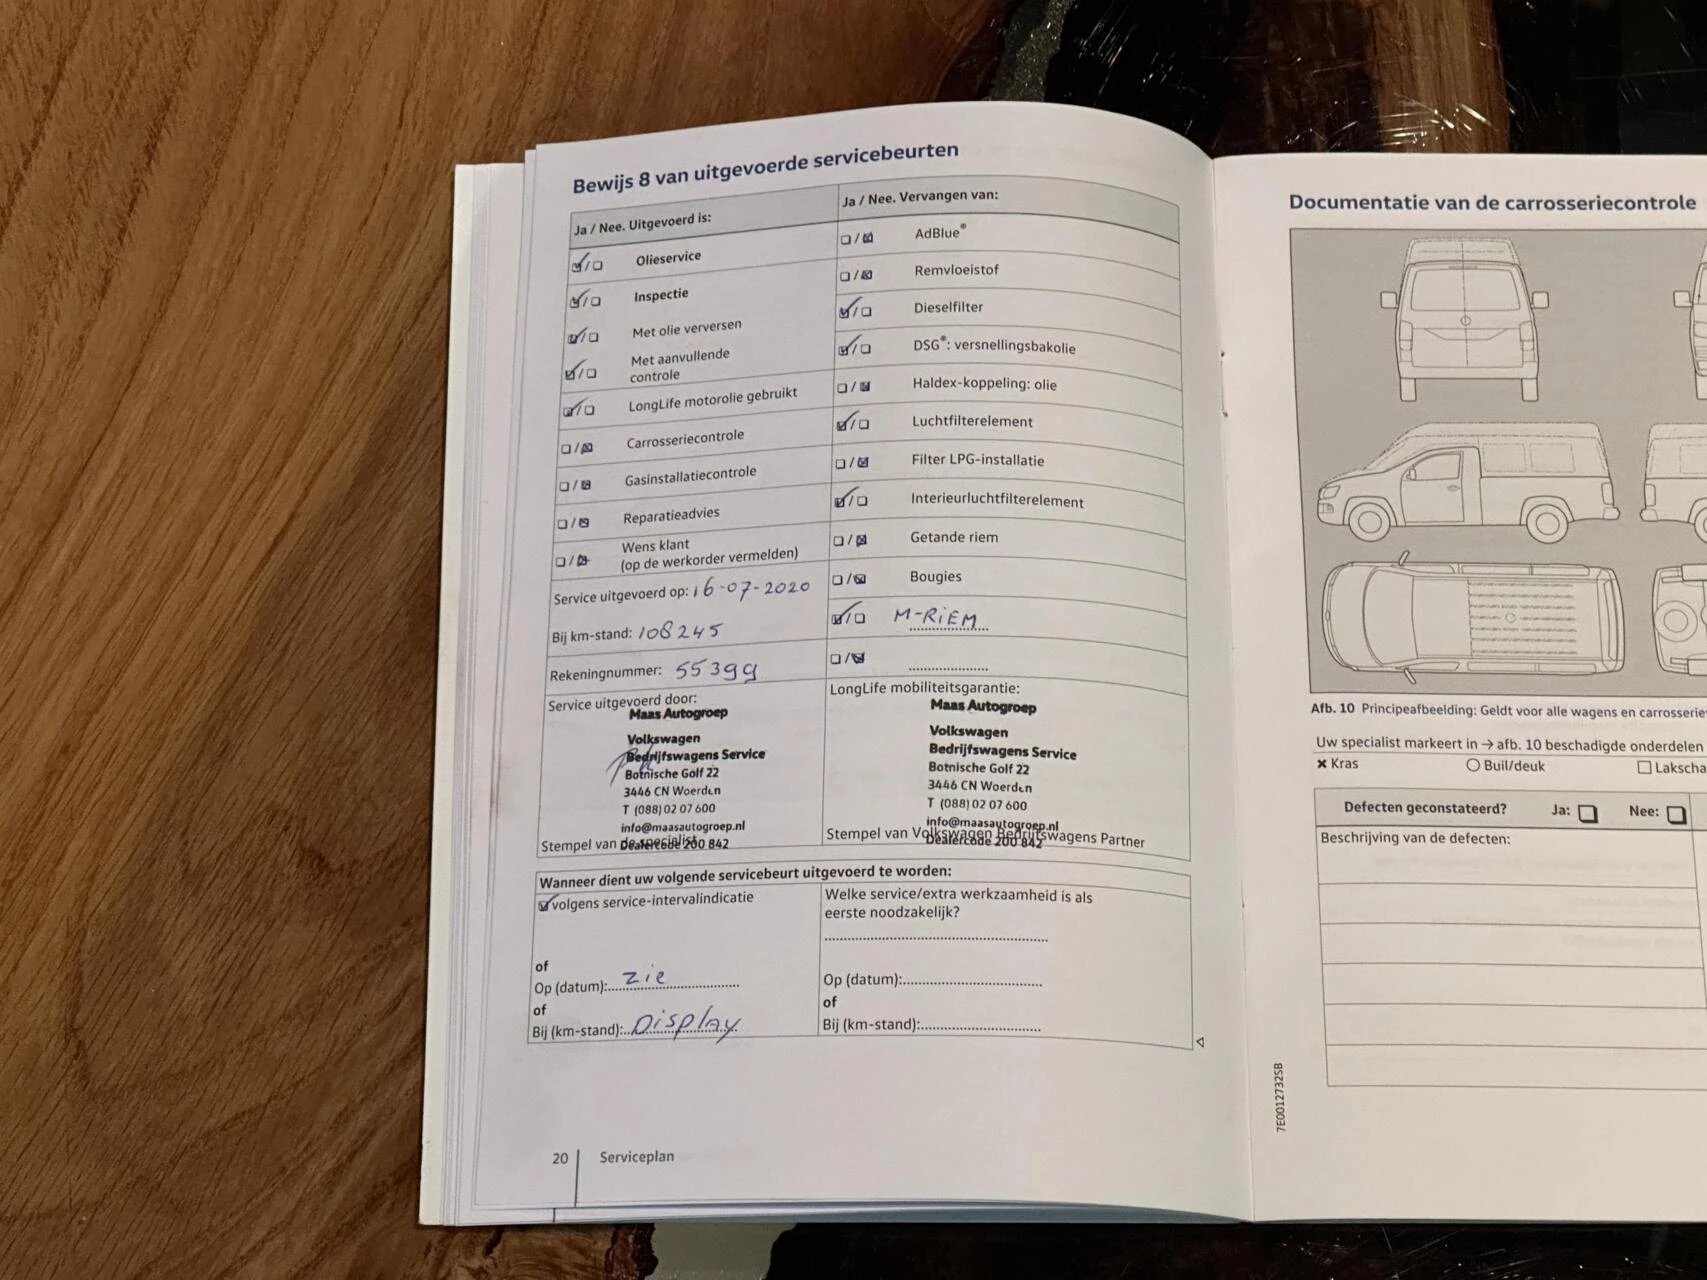 Bewijs 8 van uitgevoerde servicebeurten
Ja / Nee. Uitgevoerd is:
Olieservice
Inspectie
Met olie verversen
Met aanvullende
controle
LongLife motorolie gebruikt
Carrosseriecontrole
Gasinstallatiecontrole
Reparatieadvies
Wens klant
(op de werkorder vermelden)
Service uitgevoerd op: 16-07-2020
Bij km-stand: 108245
Rekeningnummer: 55399
Service uitgevoerd door:
Maas Autogroep
Volkswagen
Bedrijfswagens Service
Botnische Golf 22
3446 CN Woerden
T (088) 02 07 600
info@maasautogroep.nl
Dealercode 200 842
Stempel van de specialist
Ja / Nee. Vervangen van:
AdBlue®
Remvloeistof
Dieselfilter
DSG®: versnellingsbakolie
Haldex-koppeling: olie
Luchtfilterelement
Filter LPG-installatie
Interieurluchtfilterelement
Getande riem
Bougies
M-RiEM
LongLife mobiliteitsgarantie:
Maas Autogroep
Volkswagen
Bedrijfswagens Service
Botnische Golf 22
3446 CN Woerden
T (088) 02 07 600
info@maasautogroep.nl
Dealercode 200 842
Stempel van Volkswagen Bedrijfswagens Partner
Wanneer dient uw volgende servicebeurt uitgevoerd te worden:
volgens service-intervalindicatie
of
Op (datum): zie
of
Bij (km-stand): Display
Welke service/extra werkzaamheid is als
eerste noodzakelijk?
Op (datum):
of
Bij (km-stand):
20 Serviceplan
Documentatie van de carrosseriecontrole
Afb. 10 Principeafbeelding: Geldt voor alle wagens en carrosserie
Uw specialist markeert in → afb. 10 beschadigde onderdelen
× Kras Buil/deuk Lakscha
Defecten geconstateerd? Ja: Nee:
Beschrijving van de defecten:
7E0012732SB